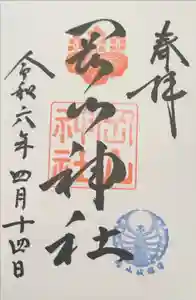 奉拝
岡山神社
岡山
神社
令和六年四月十四日